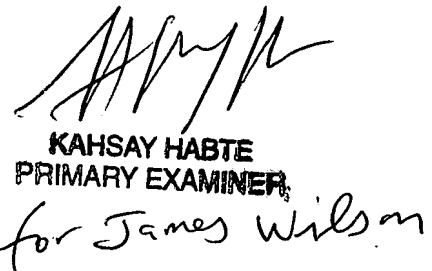 KAHSAY HABTE
PRIMARY EXAMINER
for James Wilson